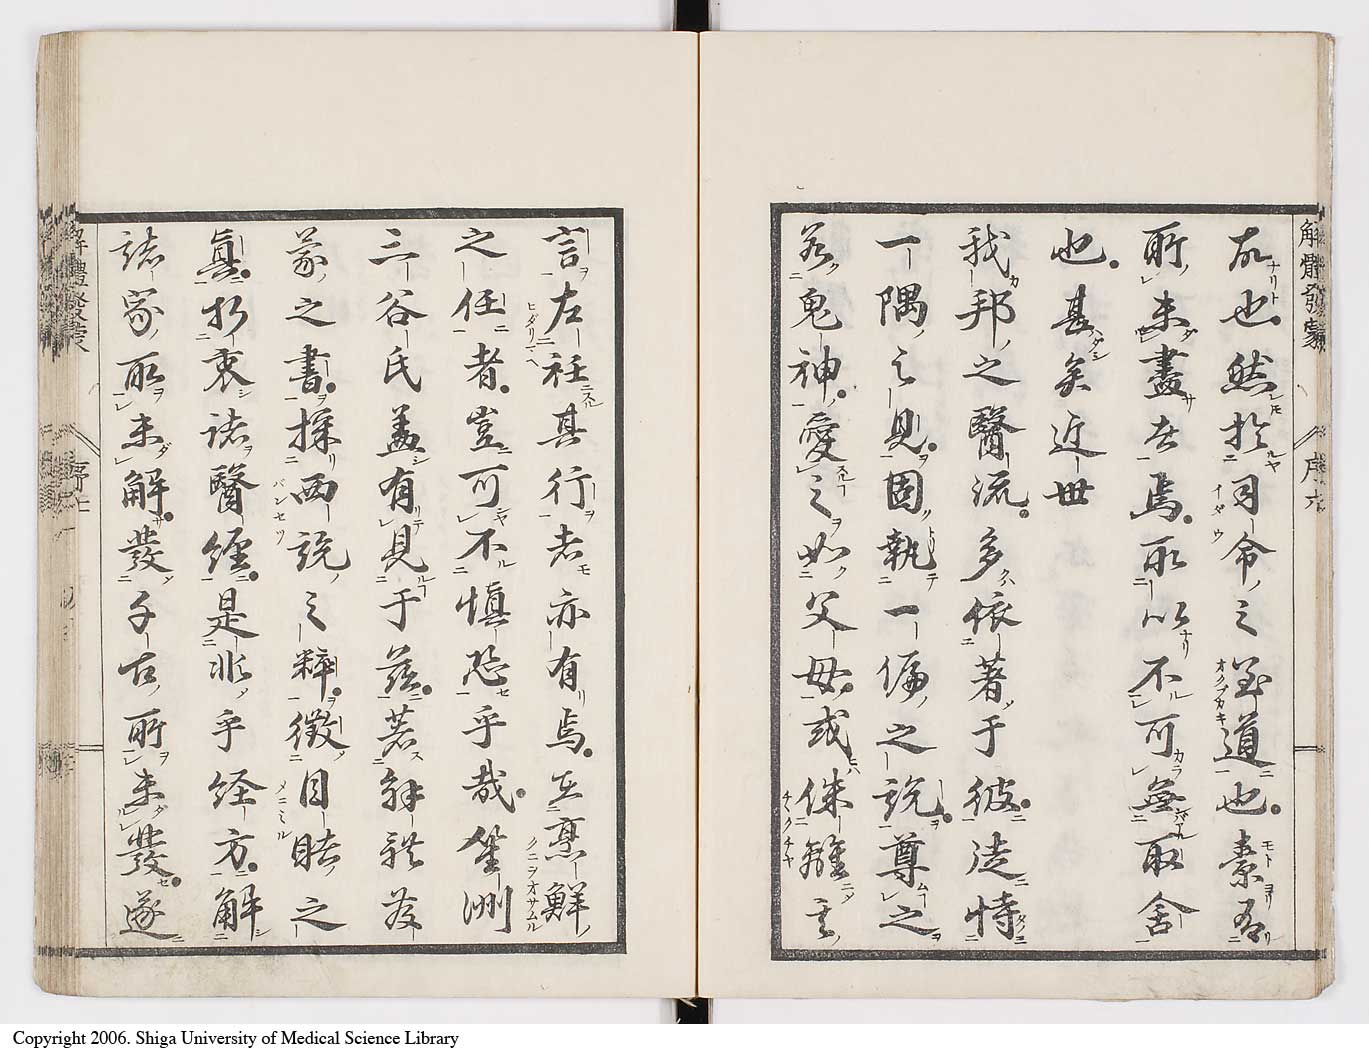 解體發蒙
序六
故也然於司命之至道也素有
所未盡去焉所以不可無取舍
也甚矣近世
我邦之醫流多依著于彼徒恃
一隅之見固執一偏之説尊之
若鬼神愛之如父母或侏離其
言左衽其行者亦有焉烹鮮
之任者豈可不慎恐乎哉
三谷氏蓋有見于茲著解體發
蒙之書採西説之粹徴目睹之
真折衷諸醫經是非乎経方解
諸家所未解發千古所未發遂
解體發蒙
序七
Copyright 2006. Shiga University of Medical Science Library